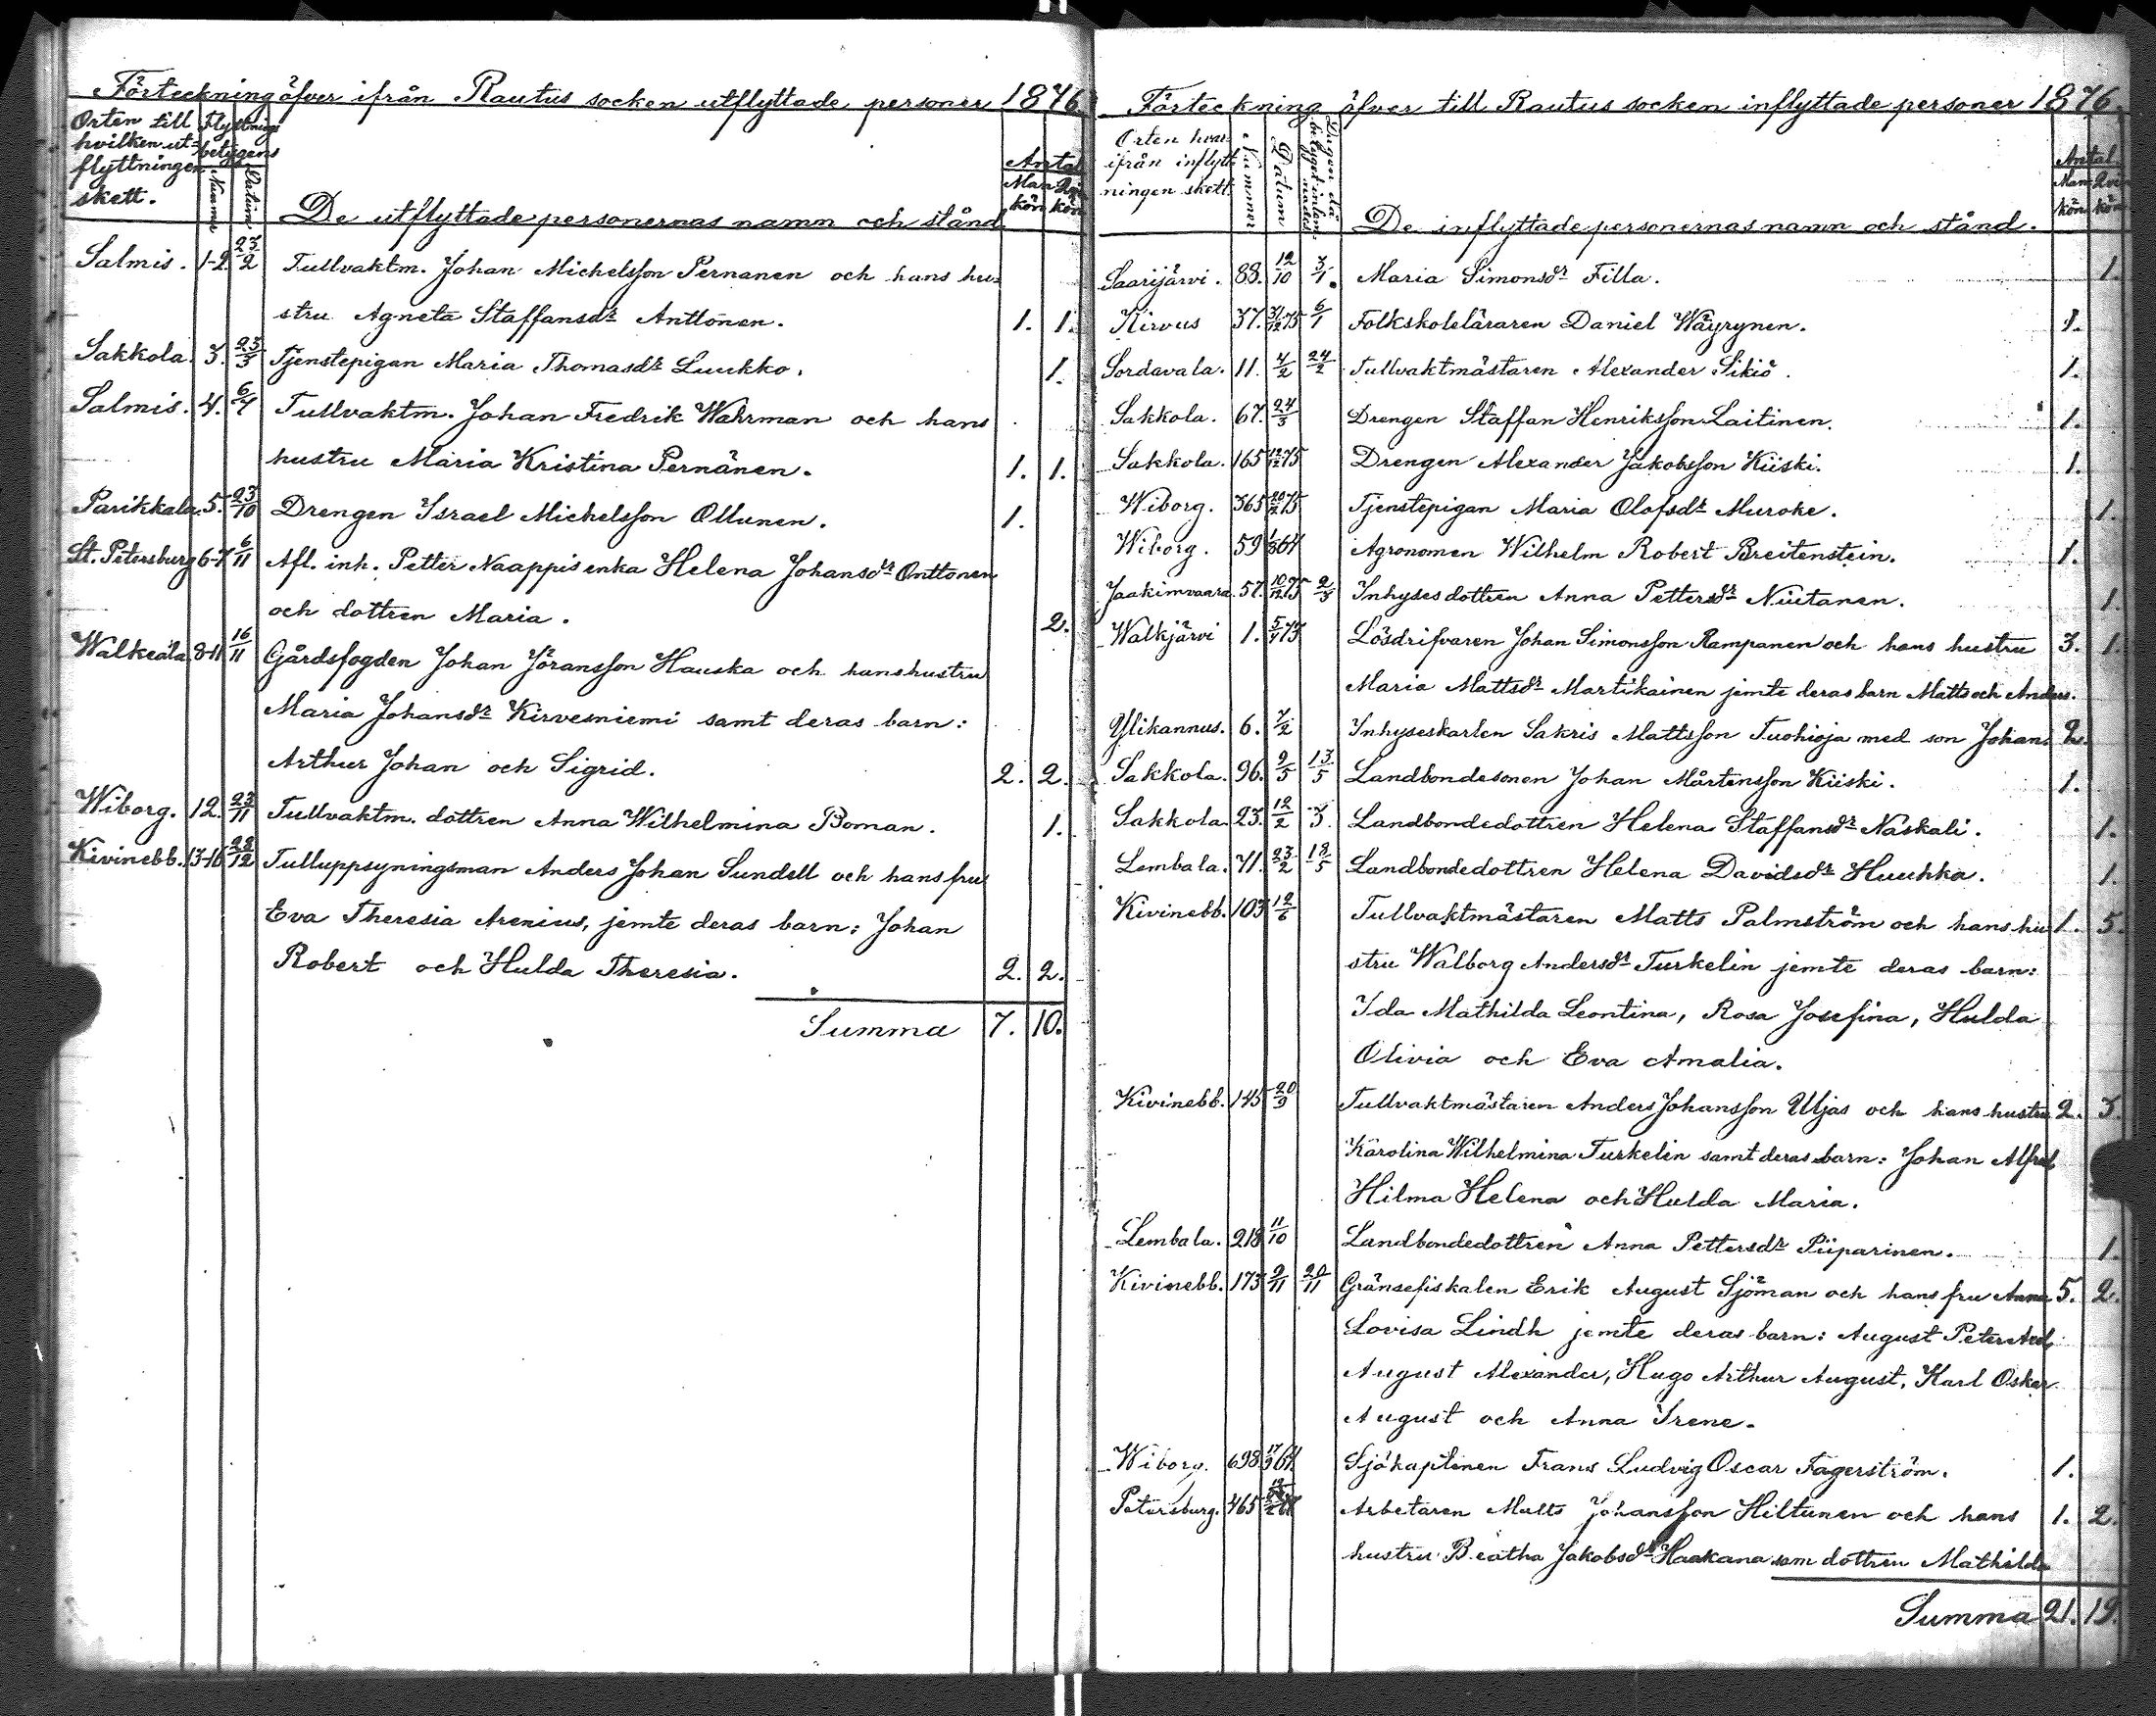 Förteckning öfver ifrån Rautus socken utflyttade personer 1876
Orten till hvilken utflyttningen skett. Flyttnings betygens Nummer Datum De utflyttade personernas namn och stånd Antal Mankön Qvinkön
Salmis. 1-2. 23/2 Tullvaktm. Johan Michelsson Pernanen och hans hu-
stru Agneta Staffansdr Anttonen. 1. 1.
Sakkola. 3. 23/3 Tjenstepigan Maria Thomasdr Luukko. 1.
Salmis. 4. 6/4 Tullvaktm. Johan Fredrik Wahrman och hans
hustru Maria Kristina Pernänen. 1. 1.
Parikkala. 5. 23/10 Drengen Israel Michelsson Ollunen. 1.
St. Petersburg 6-7 6/11 Afl. inh. Petter Naappis enka Helena Johansdr Onttonen
och dottren Maria. 2.
Walkeala 8-11 16/11 Gårdsfogden Johan Jöransson Hauska och hans hustru
Maria Johansdr Kirvesniemi samt deras barn:
Arthur Johan och Sigrid. 2. 2.
Wiborg. 12. 23/11 Tullvaktm. dottren Anna Wilhelmina Boman. 1.
Kivinebb. 13-16 22/12 Tulluppsyningsman Anders Johan Sundell och hans fru
Eva Theresia Arenius, jemte deras barn: Johan
Robert och Hulda Theresia. 2. 2.
Summa 7. 10.
Förteckning öfver till Rautus socken inflyttade personer 1876.
Orten hvarifrån inflyttningen skett. Nummer Datum Dagen då betyget inlemnades De inflyttade personernas namn och stånd. Antal Mankön Qvinkön
Saarijärvi. 88. 12/10 3/1. Maria Simonsdr Filla. 1.
Kirvus 37. 31/12 75 6/1 Folkskoleläraren Daniel Wäyrynen. 1.
Sordavala. 11. 4/2 24/2 Tullvaktmästaren Alexander Sikiö. 1.
Sakkola. 67. 24/3 Drengen Staffan Henriksson Laitinen. 1.
Sakkola. 165 75 Drengen Alexander Jakobsson Kiiski. 1.
Wiborg. 365 75 Tjenstepigan Maria Olofsdr Muroke. 1.
Wiborg. 59 64 Agronomen Wilhelm Robert Breitenstein. 1.
Jaakimvaara. 57. 10/12 75 2/3 Inhysesdottren Anna Pettersdr Niutanen. 1.
Walkjärvi 1. 75 Lösdrifvaren Johan Simonsson Rampanen och hans hustru 3. 1.
Maria Mattsdr Martikainen jemte deras barn Matts och Anders.
Ylikannus. 6. 7/2 Inhyseskarlen Sakris Mattsson Tuohioja med son Johan. 2.
Sakkola. 96. 9/5 13/5 Landbondesonen Johan Mårtensson Kiiski. 1.
Sakkola. 23. 12/2 3. Landbondedottren Helena Staffansdr Näskali. 1.
Lembala. 71. 23/2 18/5 Landbondedottren Helena Davidsdr Huuhka. 1.
Kivinebb. 103 12/6 Tullvaktmästaren Matts Palmström och hans hu- 1. 5.
stru Walborg Andersdr Turkelin jemte deras barn:
Ida Mathilda Leontina, Rosa Josefina, Hulda
Olivia och Eva Amalia.
Kivinebb. 145 20/9 Tullvaktmästaren Anders Johansson Uljas och hans hustru 2. 3.
Karolina Wilhelmina Turkelin samt deras barn: Johan Alfred
Hilma Helena och Hulda Maria.
Lembala. 218 11/10 Landbondedottren Anna Pettersdr Piiparinen. 1.
Kivinebb. 173 9/11 20/11 Gränsefiskalen Erik August Sjöman och hans fru Anna 5. 2.
Lovisa Lindh jemte deras barn: August Peter Axel
August Alexander, Hugo Arthur August, Karl Oskar
August och Anna Irene.
Wiborg. 698 Sjökaptenen Frans Ludvig Oscar Fagerström. 1.
Petersburg. 465 Arbetaren Matts Johansson Hiltunen och hans 1. 2.
hustru Beatha Jakobsdr Haakana som dottren Mathilda
Summa 21. 19.